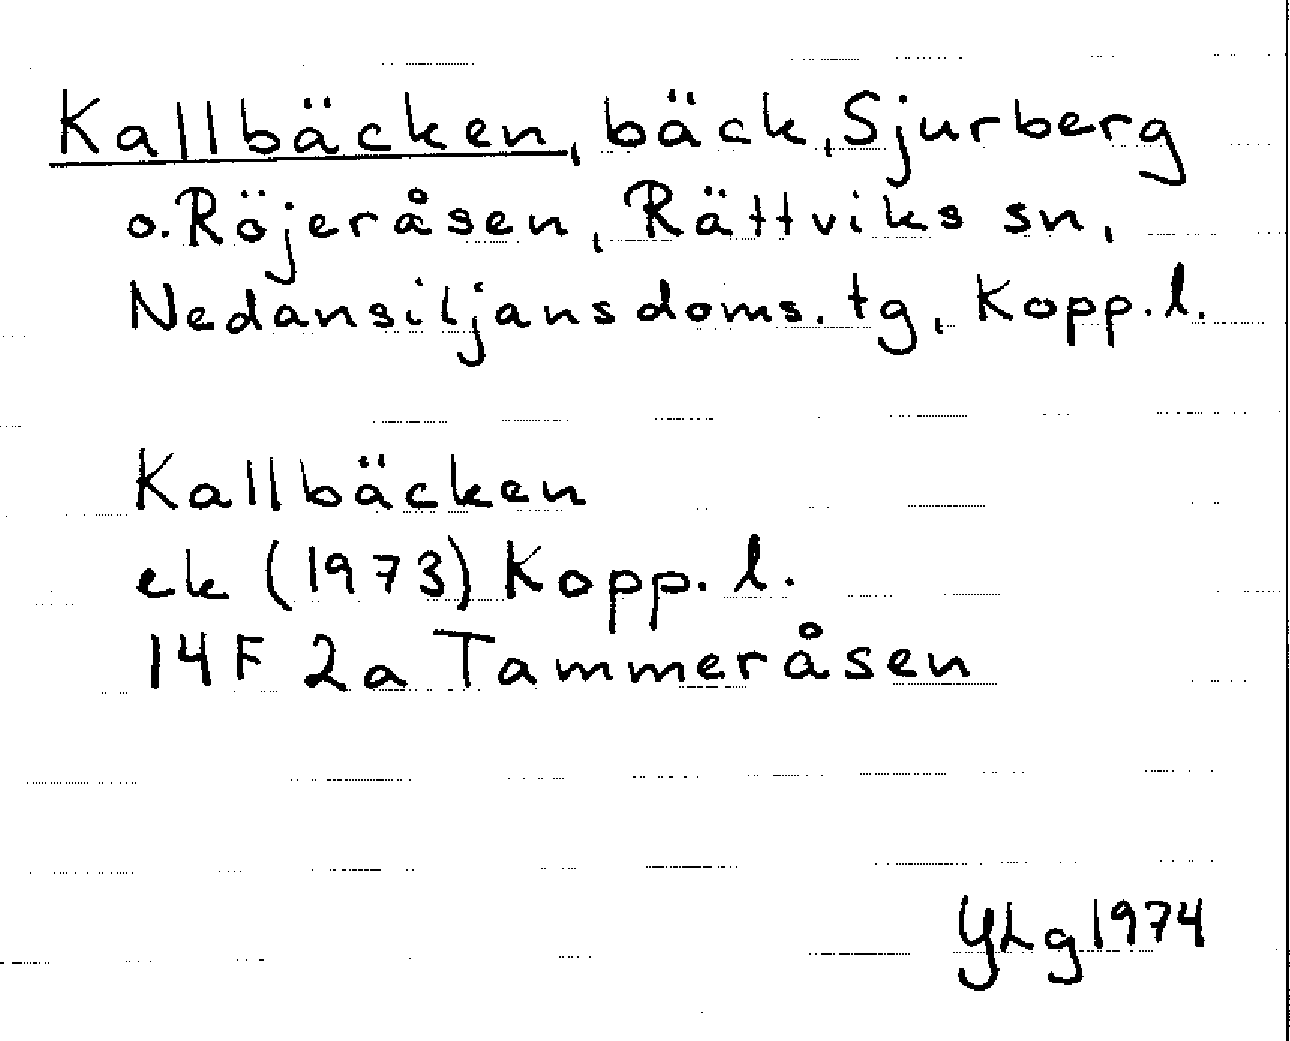 Kallbäcken, bäck, Sjurberg
o. Röjeråsen, Rättviks sn,
Nedansiljans doms. tg, Kopp. l.
Kallbäcken
ek (1973) Kopp. l.
14F 2a Tammeråsen
YLg 1974